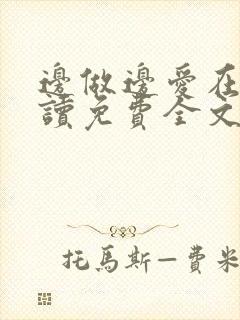 邊做邊愛在
讀免費全文
托馬斯—費米